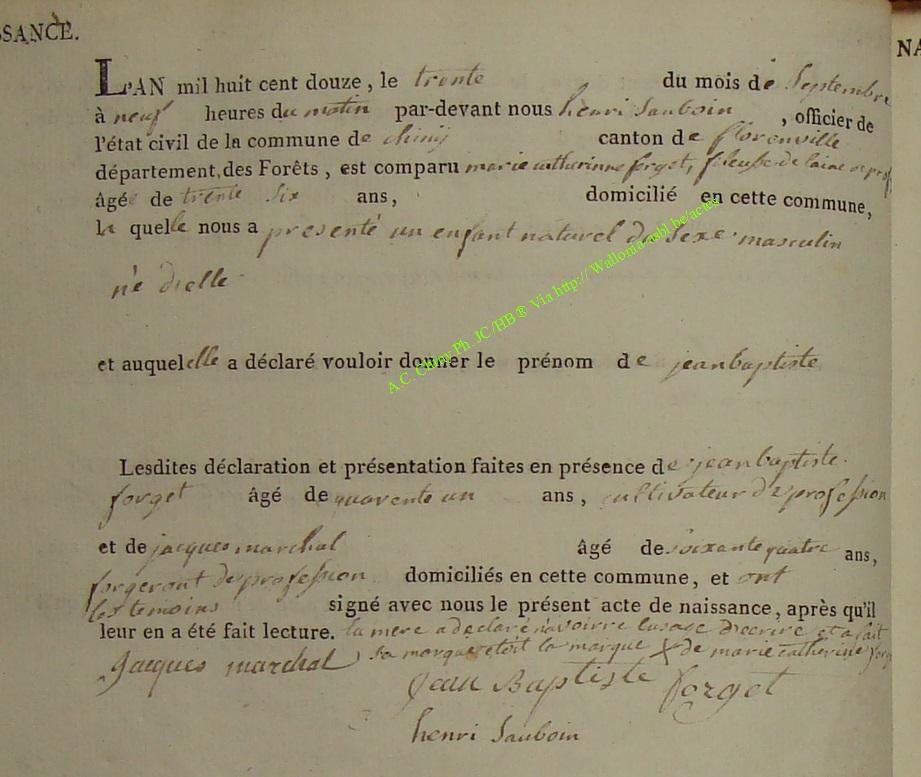 SSANCE.
NA
L'AN mil huit cent douze, le trente du mois de Septembre
à neuf heures du matin par-devant nous henri Sauboin, officier de
l'état civil de la commune de chinij canton de florenville
département des Forêts, est comparu marie catherinne forget, fileuse de laine de prof
âgé de trente six ans, domicilié en cette commune,
la quelle nous a presenté un enfant naturel du sexe masculin
né d'elle
et auquel elle a déclaré vouloir donner le prénom de jean baptiste
Lesdites déclaration et présentation faites en présence de jean baptiste
forget âgé de quarente un ans, cultivateur de profession
et de jacques marchal âgé de soixante quatre ans,
forgeront de profession domiciliés en cette commune, et ont
les temoins signé avec nous le présent acte de naissance, après qu'il
leur en a été fait lecture. la mere a declaré n'avoirre lusage d'ecrire et a fait
sa marque etoit la marque X de marie catherine forg
Jacques marchal
Jean Baptiste forget
henri Sauboin
A.C. Chiny Ph. JC/HB® Via http://Wallonia-asbl.be/actes